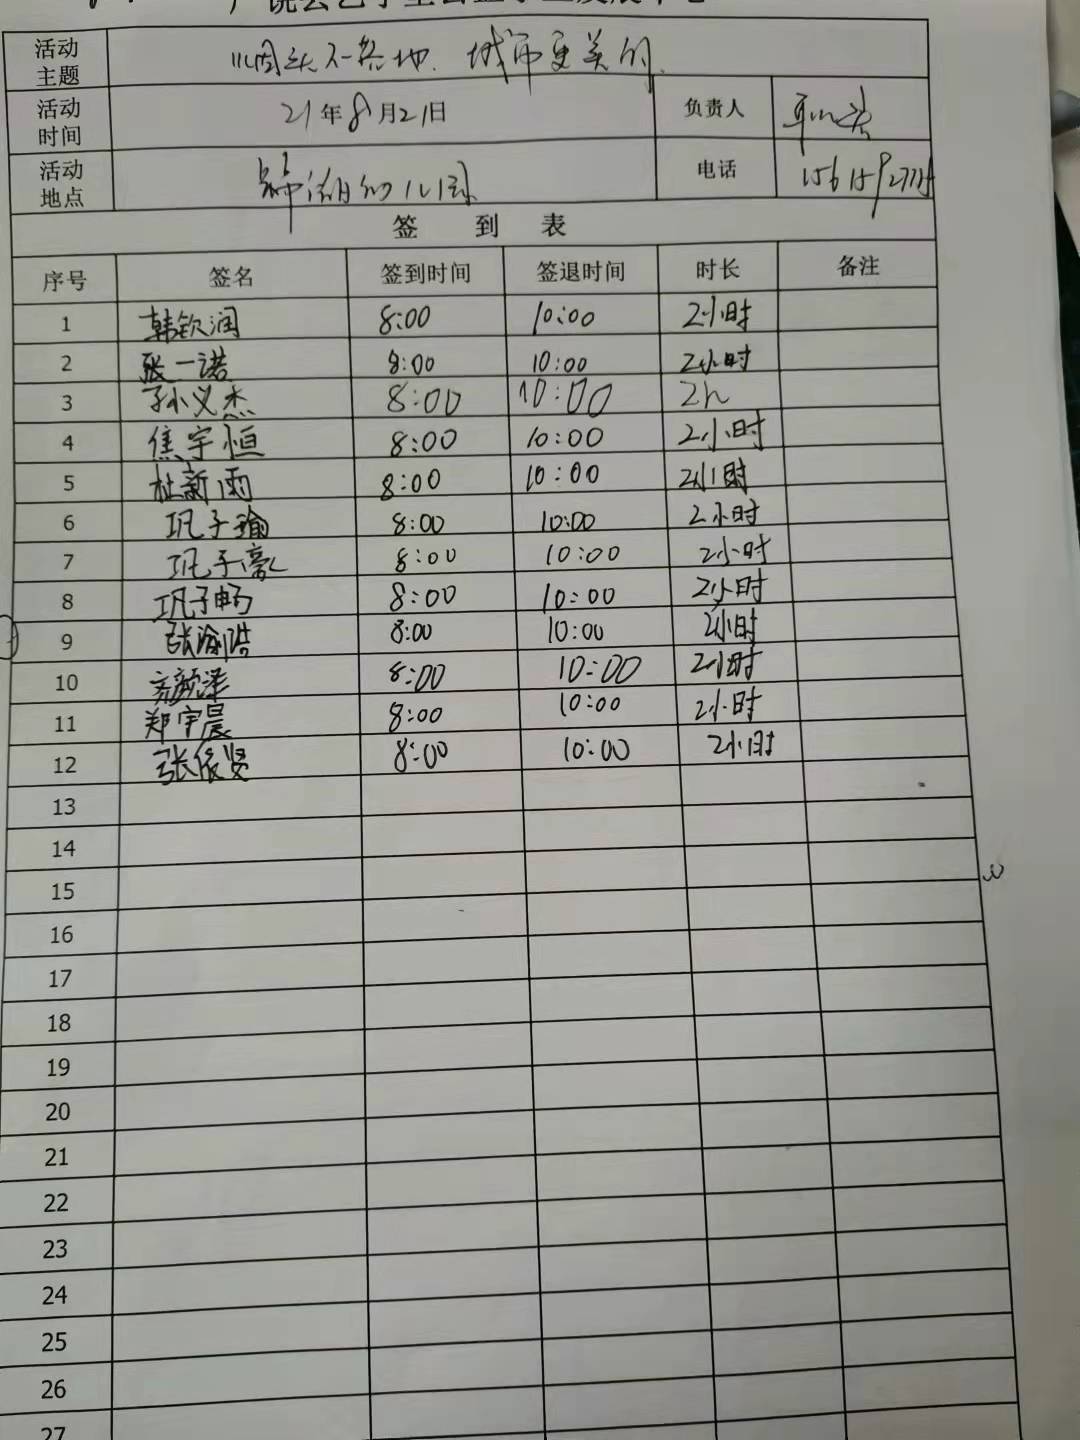 活动主题 烟头不落地、城市更美丽
活动时间 21年8月21日 负责人
活动地点 电话
签到表
序号 签名 签到时间 签退时间 时长 备注
1 韩钦润 8:00 10:00 2小时
2 张一诺 8:00 10:00 2小时
3 孙义杰 8:00 10:00 2h
4 焦宇恒 8:00 10:00 2小时
5 杜新雨 8:00 10:00 2小时
6 巩子瑜 8:00 10:00 2小时
7 巩子豪 8:00 10:00 2小时
8 巩子畅 8:00 10:00 2小时
9 张瀹浩 8:00 10:00 2小时
10 8:00 10:00 2小时
11 郑宇晨 8:00 10:00 2小时
12 张依贤 8:00 10:00 2小时
13
14
15
16
17
18
19
20
21
22
23
24
25
26
27